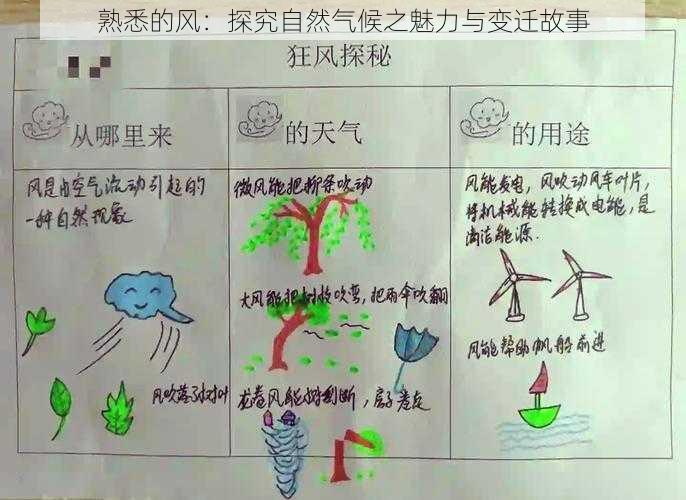 熟悉的风：探究自然气候之魅力与变迁故事
狂风探秘
从哪里来
风是由空气流动引起的
一种自然现象
风吹落了树叶
的天气
微风能把柳条吹动
大风能把树枝吹弯，把雨伞吹翻
龙卷风能树刮断，房子卷走
的用途
风能发电，风吹动风车叶片，
将机械能转换成电能，是
清洁能源.
风能帮助帆船前进